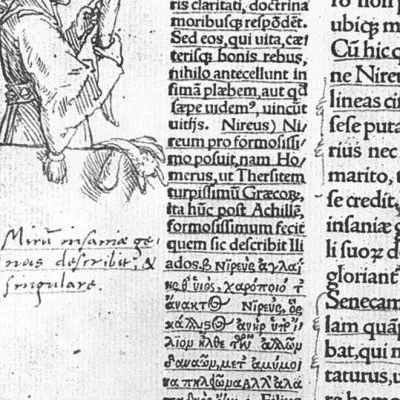 Mirū insaniæ ge-
nus describit, &
singulare.
ris claritati, doctrina
moribusq; respōdēt.
Sed eos, qui uita, cæ/
terisq; bonis rebus,
nihilo antecellunt in
simā plæbem, aut qđ
sæpe uidem⁹, uincūt
uitijs. Nireus) Ni/
reum pro formosissi/
mo posuit, nam Ho/
merus, ut Thersitem
turpissimū Græcoꝝ,
ita hūc post Achillē,
formosissimum fecit
quem sic describit Ili
ados.β Νιρεὺς ἀγλαί
ης θ' υἱὸς, χαρόποιό τ'
ἄνακτΘ Νιρεὺς, ὃς
ἀνὴρ ὑπ'
ἴλιον ἦλθε τῶν ἄλλων
δαναῶν, μετ' ἀμύμο
να ἀλλ' ἀλα
ro non p
ubiq; m
Cū hic q
ne Nireu
lineas cir
sese puta
rius nec
marito, t
se credit,
insaniæ g
li suoꝝ d
gloriant
Senecam
lam quāp
bat, qui n
taturus, u
re homo